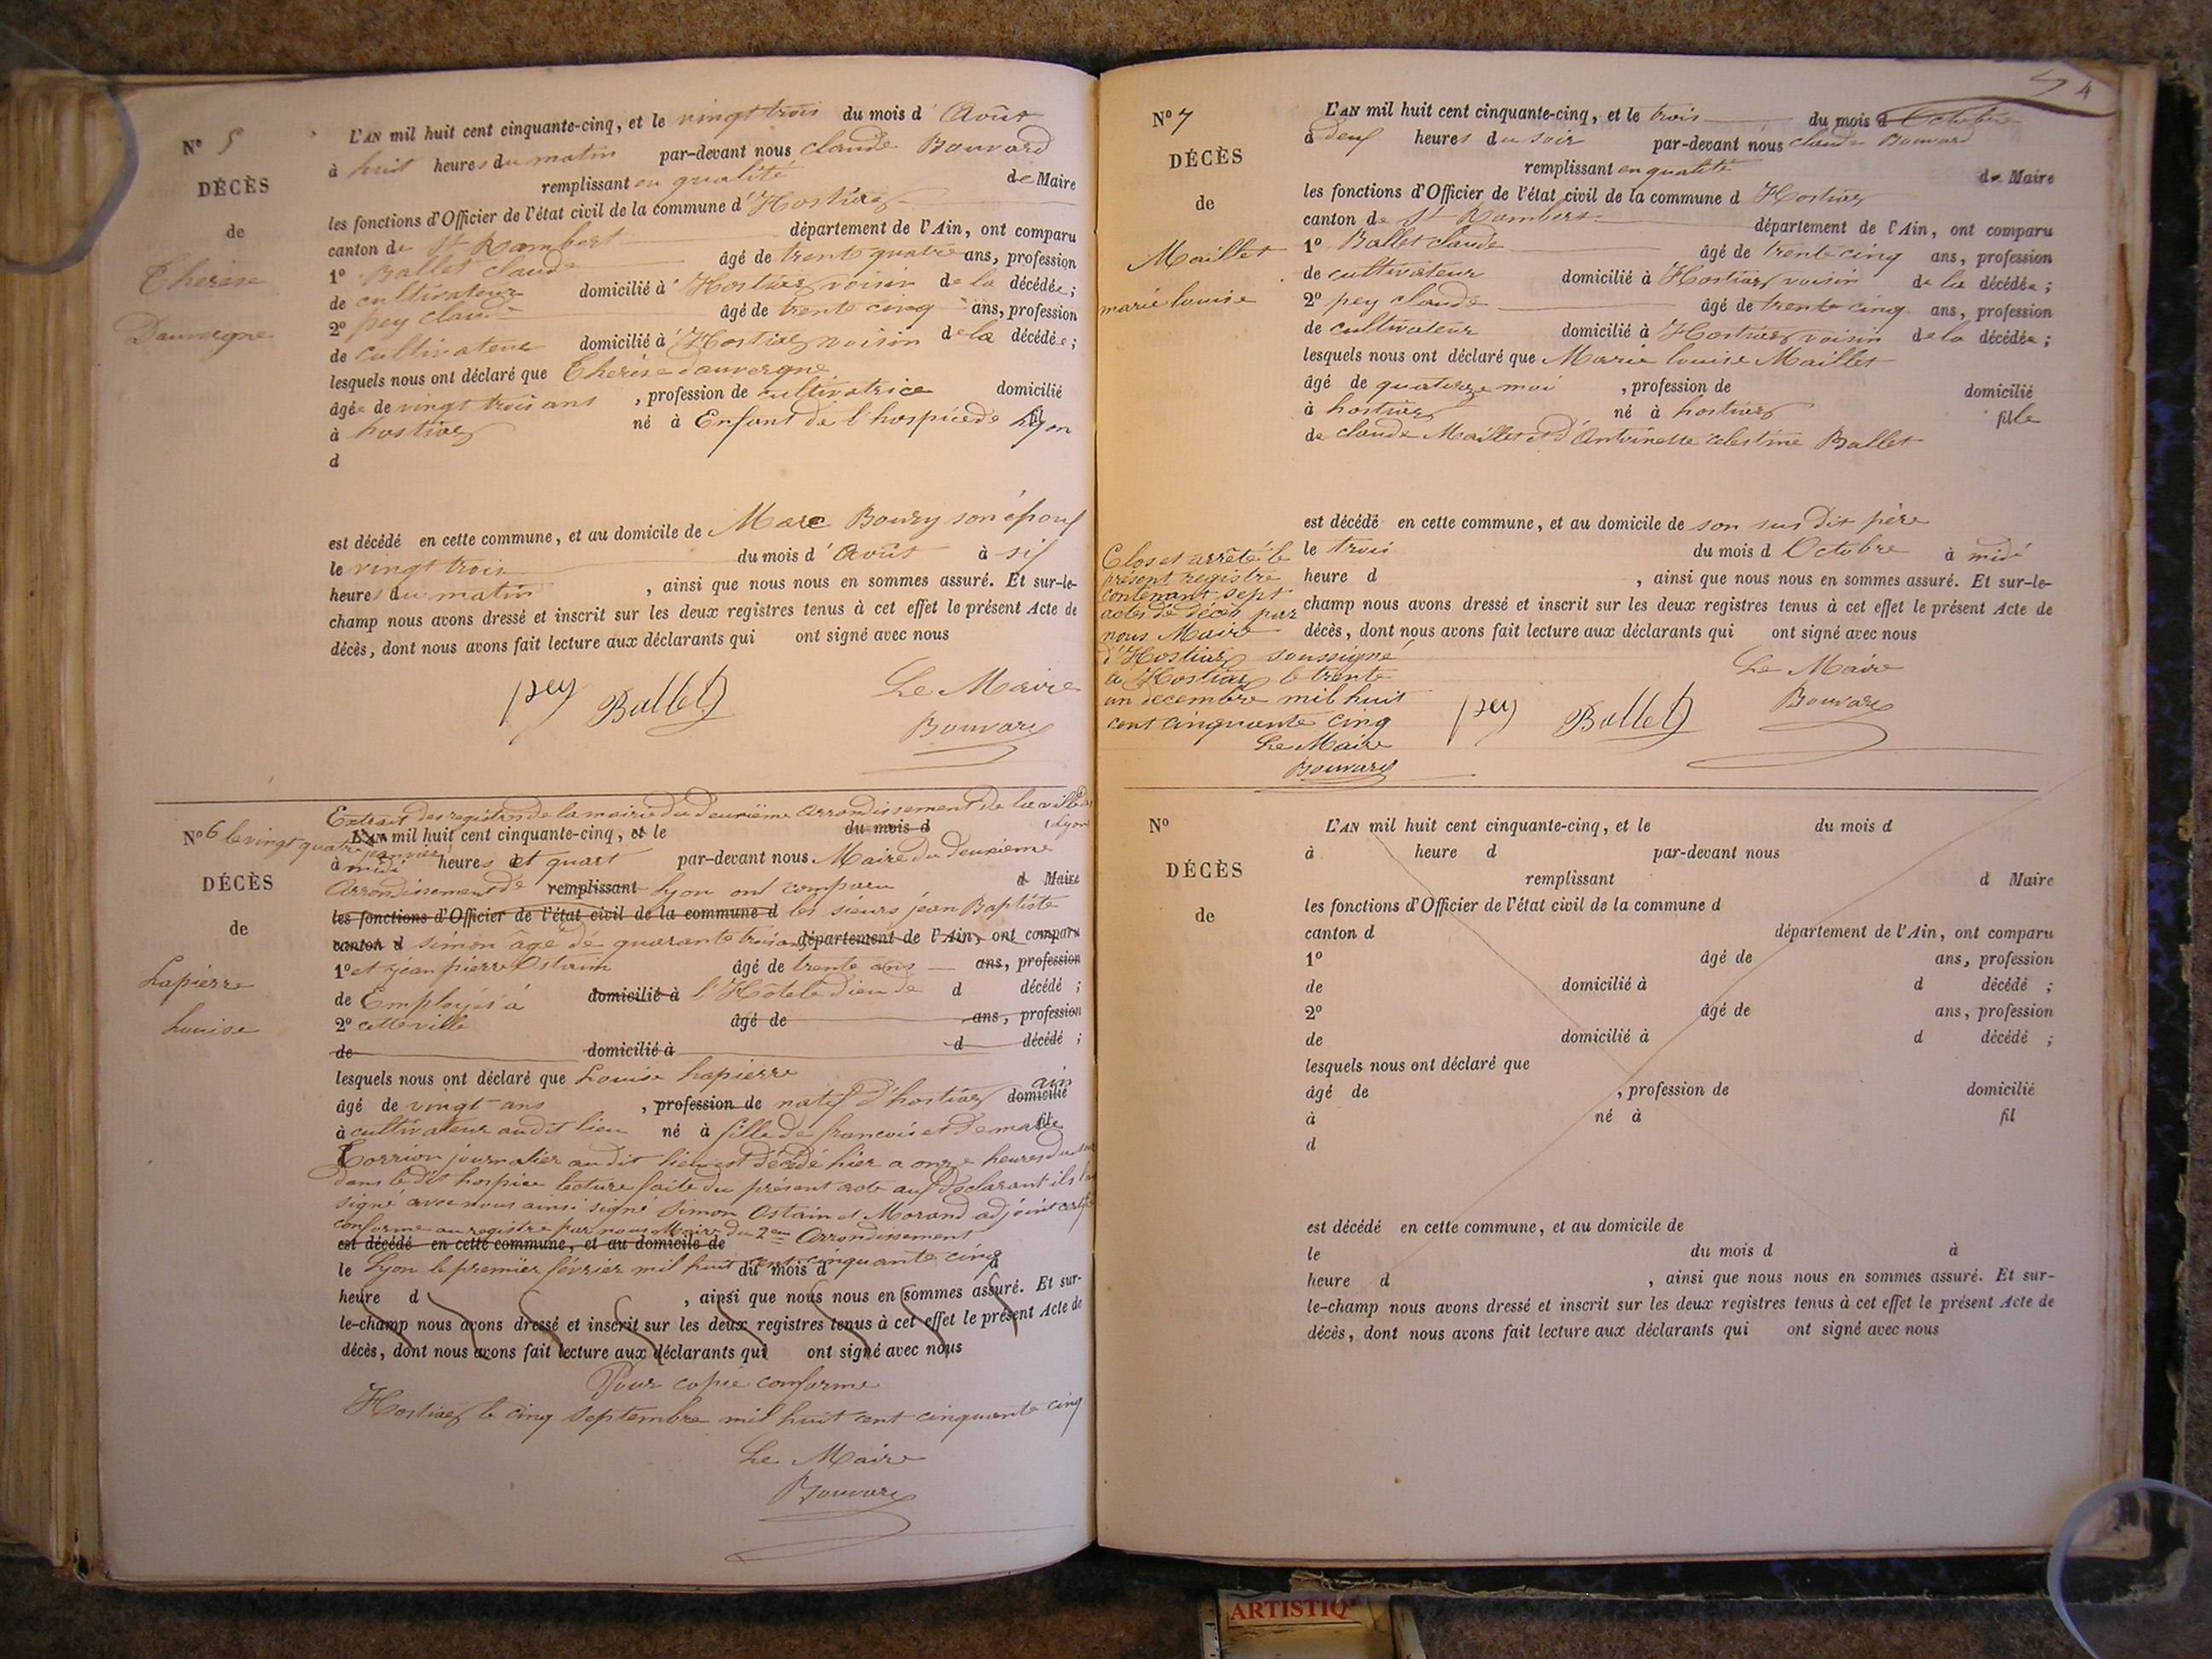 N° 5
DÉCÈS
de
Therèse
Dauvergne
L'AN mil huit cent cinquante-cinq, et le vingt trois du mois d'Août
à huit heures du matin par-devant nous claude Bouvard
remplissant en qualité de Maire
les fonctions d'Officier de l'état civil de la commune d'Hostiaz
canton de St Rambert département de l'Ain, ont comparu
1° Ballet claude âgé de trente quatre ans, profession
de cultivateur domicilié à Hostiaz voisin de la décédée;
2° pey claude âgé de trente cinq ans, profession
de cultivateur domicilié à Hostiaz voisin de la décédée;
lesquels nous ont déclaré que Therèse dauvergne
âgée de vingt trois ans, profession de cultivatrice domicilié
à hostiaz né à Enfant de l'hospice de Lyon fil
d
est décédé en cette commune, et au domicile de Marc Boury son épouf
le vingt trois du mois d'Août à sif
heures du matin, ainsi que nous nous en sommes assuré. Et sur-le-
champ nous avons dressé et inscrit sur les deux registres tenus à cet effet le présent Acte de
décès, dont nous avons fait lecture aux déclarants qui ont signé avec nous
pey Ballet Le Maire
Bouvard
N° 6
DÉCÈS
de
Lapierre
Louise
Extrait des registres de la mairie du deuxième arrondissement de la ville de Lyon
L'AN mil huit cent cinquante-cinq, et le du mois d
le vingt quatre janvier
à midi heures et quart par-devant nous Maire du deuxième
Arrondissement de remplissant Lyon ont comparu d Maire
les fonctions d'Officier de l'état civil de la commune d les sieurs jean Baptiste
canton d simon âgé de quarante trois ans département de l'Ain, ont comparu
1° et jean pierre Ostain âgé de trente ans ans, profession
de Employés à domicilié à l'Hôtel dieu de d décédé ;
2° cette ville âgé de ans, profession
de domicilié à d décédé ;
lesquels nous ont déclaré que Louise Lapierre
âgé de vingt ans, profession de natif d'hostiaz ain domicilié
à cultivateur au dit lieu né à fille de francois et de marie fil
Corrion journalier au dit lieu est décédé hier a onze heures du soir
dans le dit hospice lecture faite du présent acte auf déclarant ils l'ont
signé avec nous ainsi signé Simon Ostain et Morand adjoint certifié
conforme au registre par nous Maire du 2eme Arrondissement
est décédé en cette commune, et au domicile de
le Lyon le premier février mil huit cent cinquante cinq du mois d à
heure d , ainsi que nous nous en sommes assuré. Et sur-
le-champ nous avons dressé et inscrit sur les deux registres tenus à cet effet le présent Acte de
décès, dont nous avons fait lecture aux déclarants qui ont signé avec nous
Pour copie conforme
Hostiaz le cinq Septembre mil huit cent cinquante cinq
Le Maire
Bouvard
4
N° 7
DÉCÈS
de
Maillet
marie louise
L'AN mil huit cent cinquante-cinq, et le trois du mois d Octobre
à deuf heures du soir par-devant nous claude Bouvard
remplissant en qualité de Maire
les fonctions d'Officier de l'état civil de la commune d Hostiaz
canton de St Rambert département de l'Ain, ont comparu
1° Ballet claude âgé de trente cinq ans, profession
de cultivateur domicilié à Hostiaz voisin de la décédée ;
2° pey claude âgé de trente cinq ans, profession
de cultivateur domicilié à Hostiaz voisin de la décédée ;
lesquels nous ont déclaré que Marie louise Maillet
âgé de quatorze moi, profession de domicilié
à hostiaz né à hostiaz fille
de claude Maillet et d'Antoinette celestine Ballet
est décédé en cette commune, et au domicile de son sus dit père
le trois du mois d Octobre à midi
heure d , ainsi que nous nous en sommes assuré. Et sur-le-
champ nous avons dressé et inscrit sur les deux registres tenus à cet effet le présent Acte de
décès, dont nous avons fait lecture aux déclarants qui ont signé avec nous
pey Ballet Le Maire
Bouvard
Clos et arrêté le
présent registre
contenant sept
actes de décès par
nous Maire
d'Hostiaz soussigné
a Hostiaz le trente
un decembre mil huit
cent cinquante cinq
Le Maire
Bouvard
N°
DÉCÈS
de
L'AN mil huit cent cinquante-cinq, et le du mois d
à heure d par-devant nous
remplissant d Maire
les fonctions d'Officier de l'état civil de la commune d
canton d département de l'Ain, ont comparu
1° âgé de ans, profession
de domicilié à d décédé ;
2° âgé de ans, profession
de domicilié à d décédé ;
lesquels nous ont déclaré que
âgé de , profession de domicilié
à né à fil
d
est décédé en cette commune, et au domicile de
le du mois d à
heure d , ainsi que nous nous en sommes assuré. Et sur-
le-champ nous avons dressé et inscrit sur les deux registres tenus à cet effet le présent Acte de
décès, dont nous avons fait lecture aux déclarants qui ont signé avec nous
ARTISTIQ